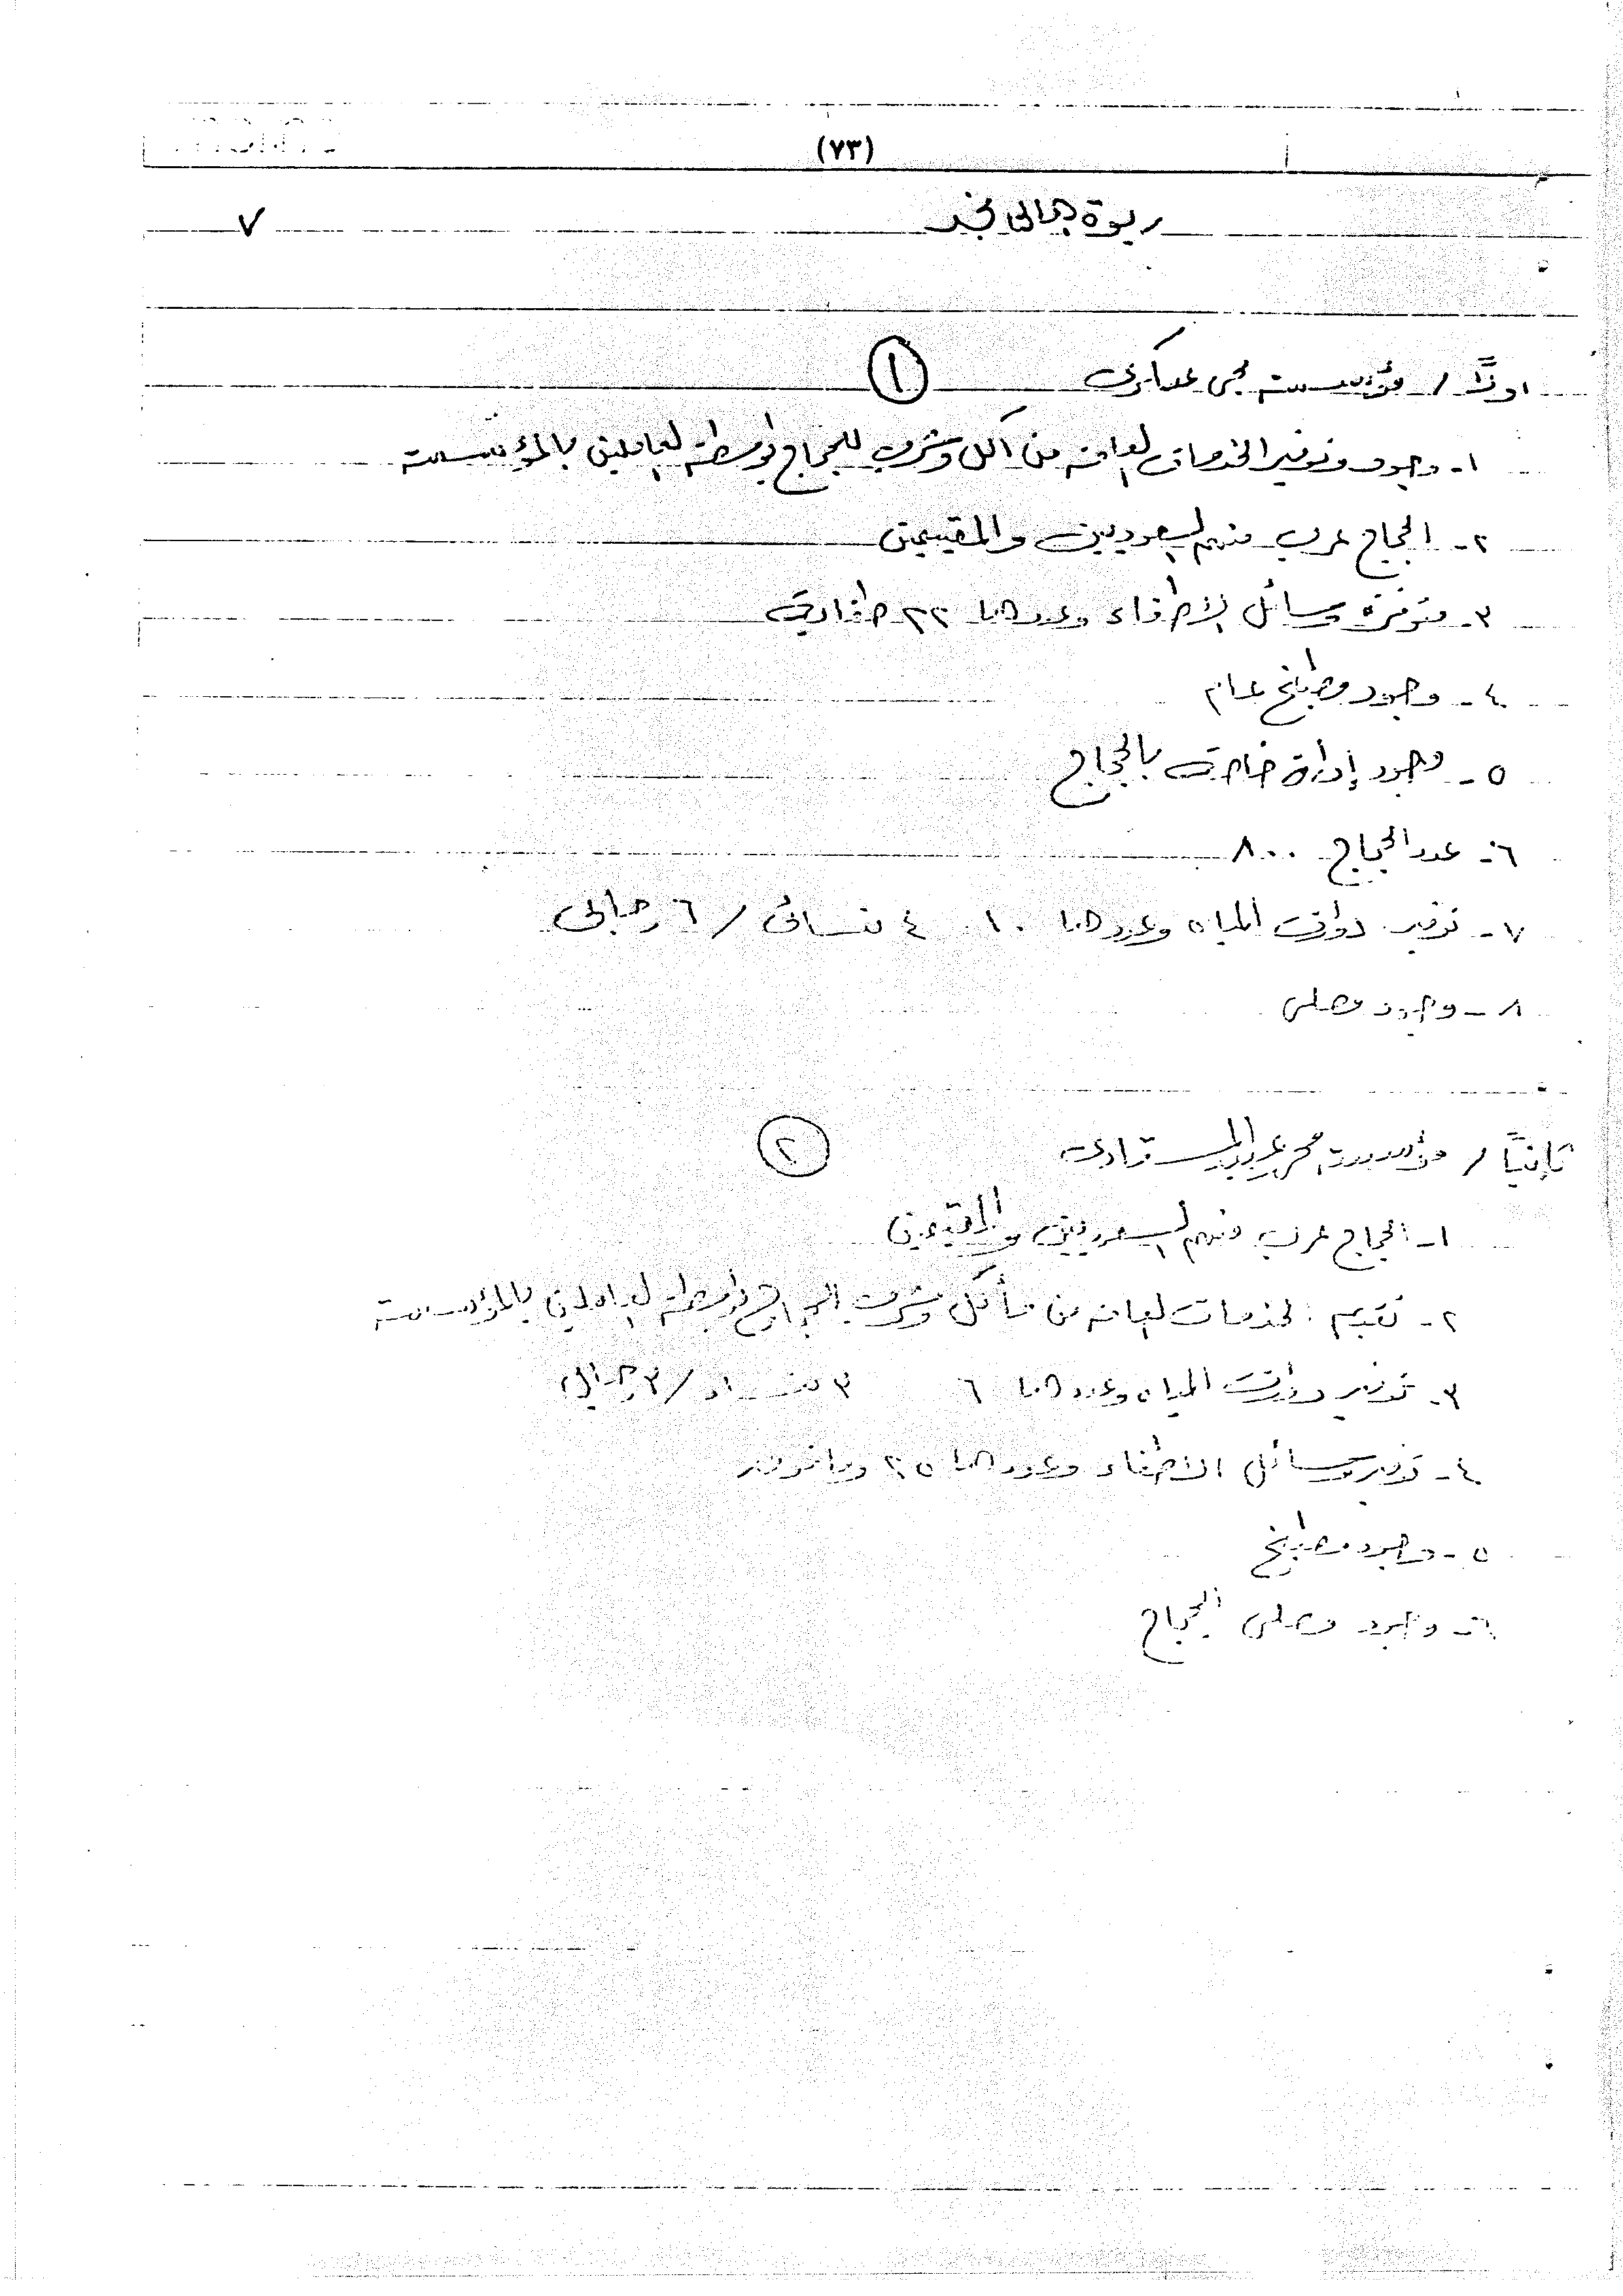 (٧٣)
ربوة ٧
اولاً / مؤسسة ①
١- وجود وتوفير الخدمات العامة من أكل وشرب للحجاج بواسطة العاملين بالمؤسسة
٢- الحجاج عرب منهم السعوديين والمقيمين
٣- متوفرة وسائل الإطفاء وعددها ٢٢ طفاية
٤- وجود مطبخ عام
٥- وجود إدارة خاصة بالحجاج
٦- عدد الحجاج ٨٠٠
٧- توفير دورات المياه وعددها ١٠ ٤ نسائي / ٦ رجالي
٨- وجود مصلى
ثانياً / مؤسسة محمد ②
١- الحجاج عرب منهم السعوديين والمقيمين
٢- تقديم الخدمات العامة من مأكل ومشرب الحجاج بواسطة العاملين بالمؤسسة
٣- توفير دورات المياه وعددها ٦ ٣ نساء / ٣ رجال
٤- توفير وسائل الاطفاء وعددها ٢٥
٥- وجود مطابخ
٦- وجود مصلى الحجاج